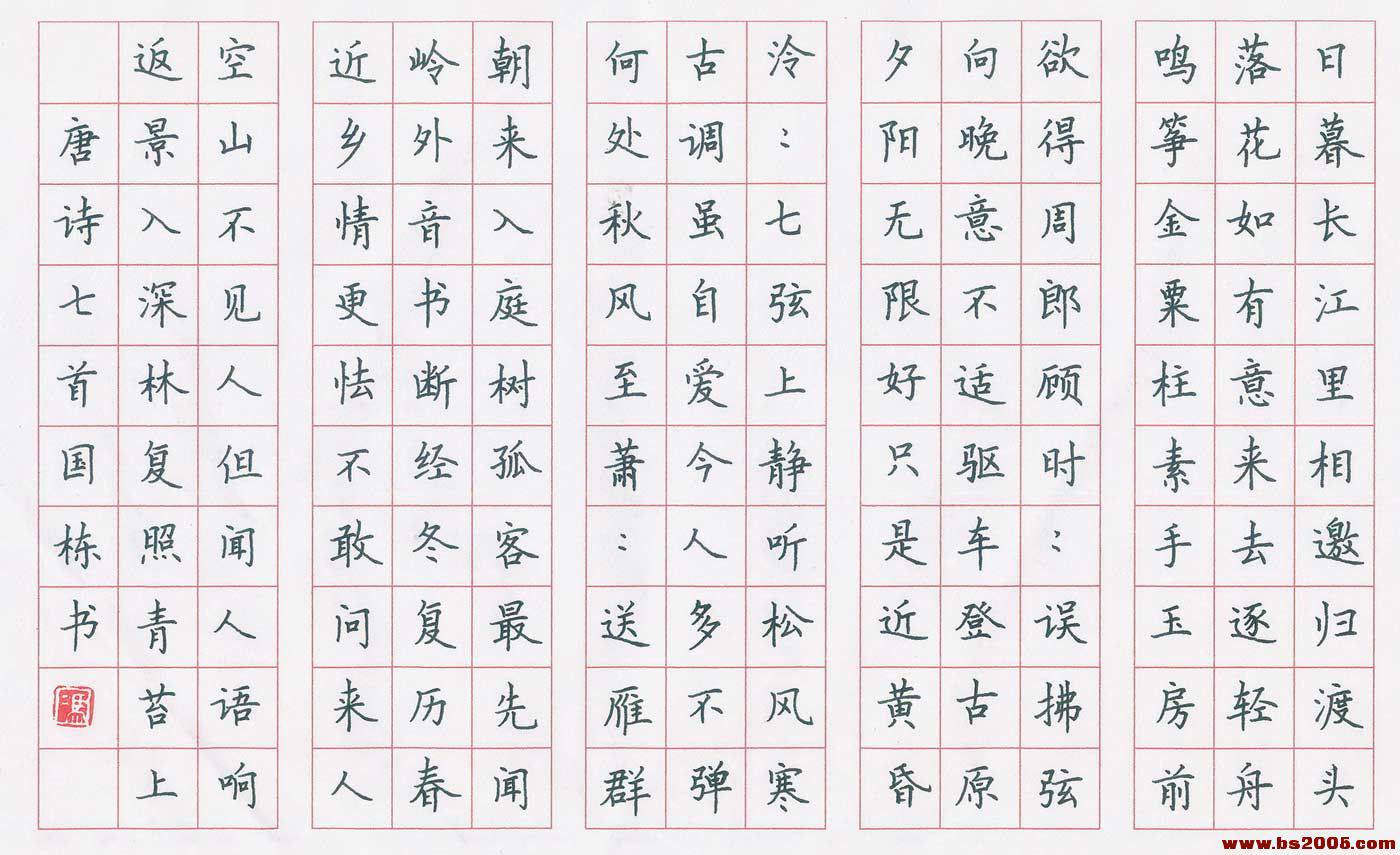 日暮长江里相邀归渡头
落花如有意来去逐轻舟
鸣筝金粟柱素手玉房前
欲得周郎顾时:误拂弦
向晚意不适驱车登古原
夕阳无限好只是近黄昏
泠:七弦上静听松风寒
古调虽自爱今人多不弹
何处秋风至萧:送雁群
朝来入庭树孤客最先闻
岭外音书断经冬复历春
近乡情更怯不敢问来人
空山不见人但闻人语响
返景入深林复照青苔上
唐诗七首国栋书
www.bs2005.com